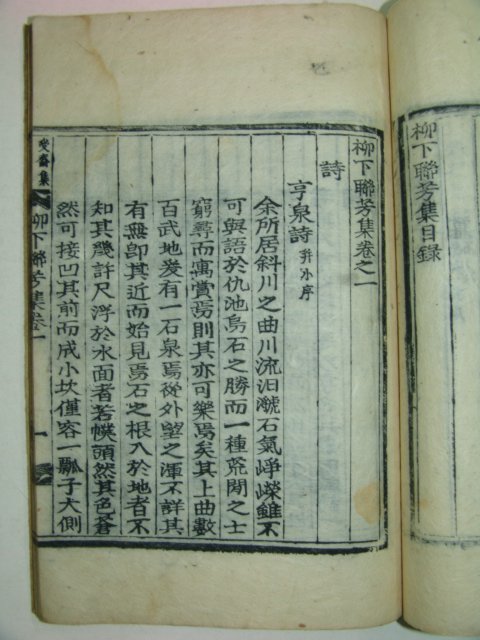 柳下聯芳集目錄
柳下聯芳集卷之一
詩
亨泉詩 幷小序
余所居斜川之曲川流汨㶁石氣崢嶸雖不
可與語於仇池島石之勝而一種荒閑之士
窮尋而寓賞焉則其亦可樂焉矣其上曲數
百武地爰有一石泉焉從外望之渾不詳其
有無卽其近而始見焉石之根入於地者不
知其幾許尺浮於水面者若幞頭然其色蒼
然可接凹其前而成小坎僅容一瓢子大側
齋集 柳下聯芳集卷一 一